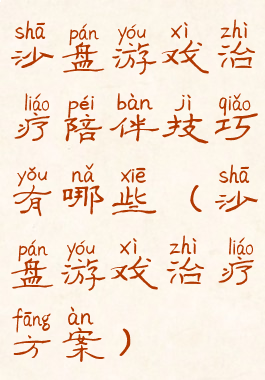 shā pán yóu xì zhì
沙盘游戏治
liáo péi bàn jì qiǎo
疗陪伴技巧
yǒu nǎ xiē shā
有哪些（沙
pán yóu xì zhì liáo
盘游戏治疗
fāng àn
方案）